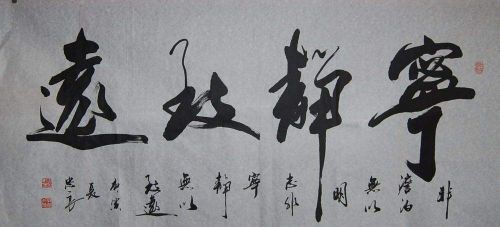 寧靜致遠
非澹泊無以明志非寧靜無以致遠
夏